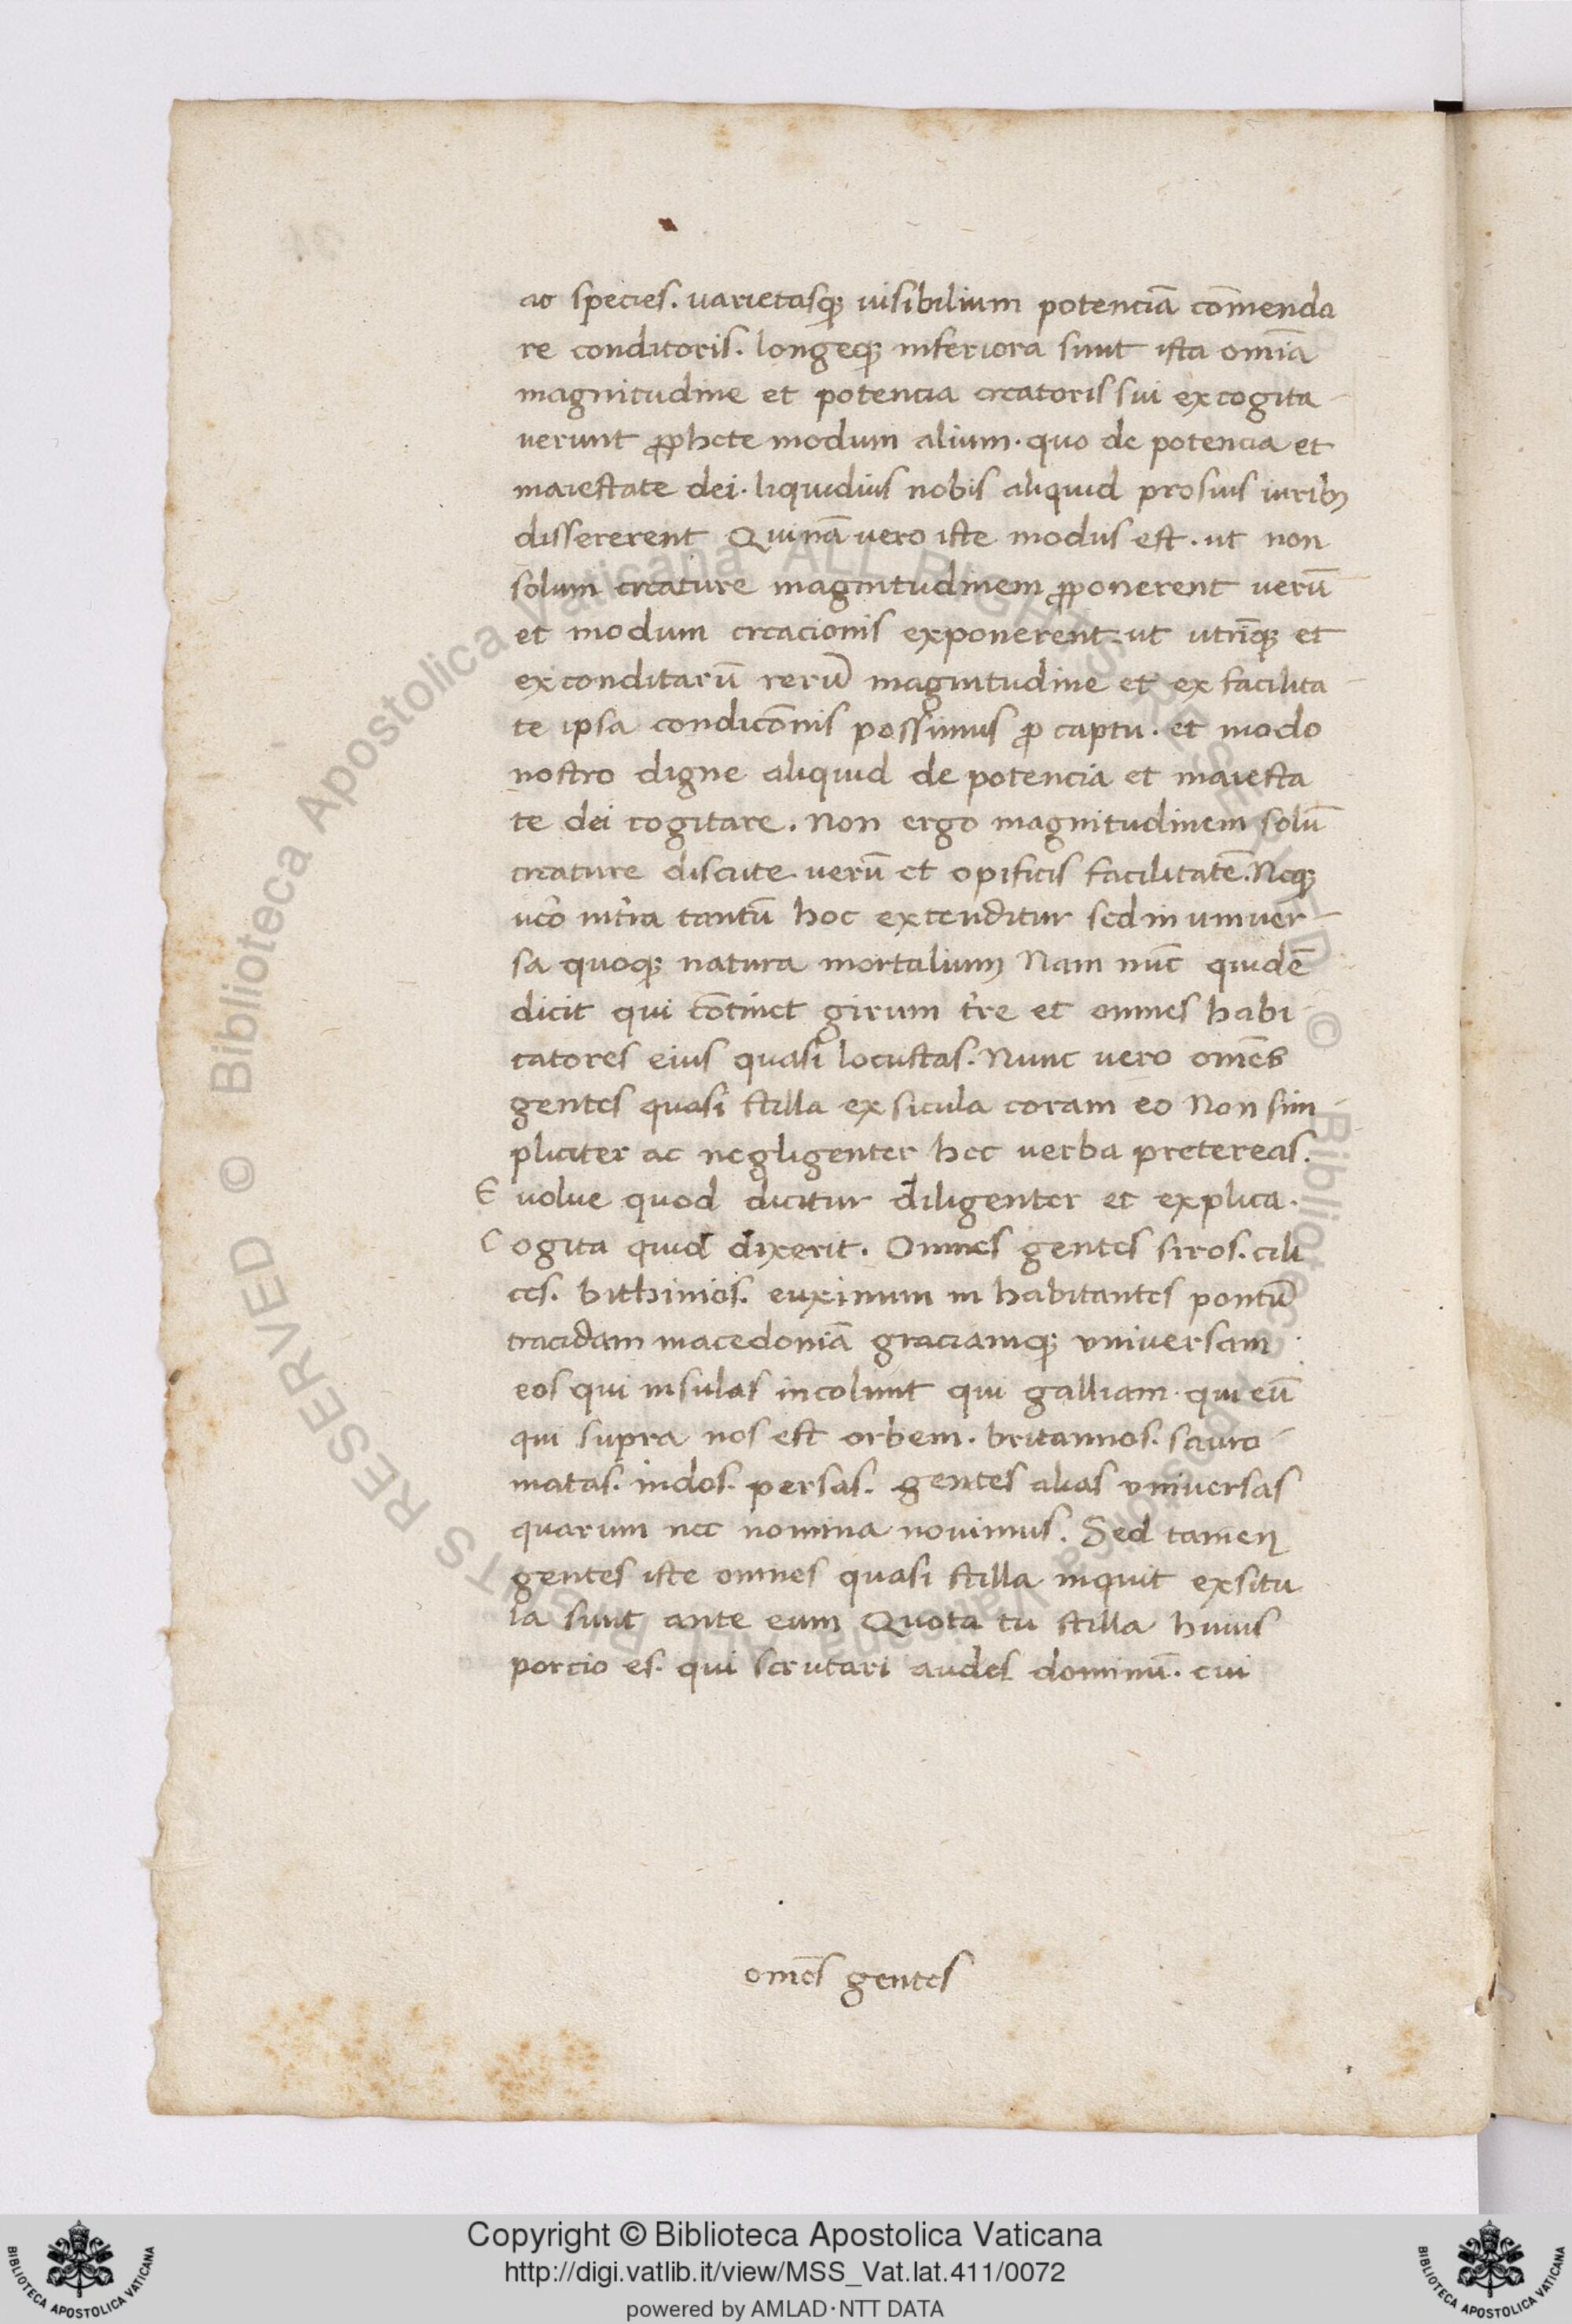 ac species. varietasqꝫ visibilium potenciā com̄enda
re conditoris. longeqꝫ inferiora sunt ista om̄ia
magnitudine et potencia creatoris sui excogita-
verunt ꝓphete modum alium. quo de potencia et
maiestate dei. liquidius nobis aliquid prosuis iuribꝫ
dissererent Quinā vero iste modus est. ut non
solum creature magnitudinem ꝓponerent verū
et modum creacionis exponerent. ut utrīqꝫ et
ex conditarū rerū magnitudine et ex facilita-
te ipsa condicōnis possimus ꝓ captu. et modo
nostro digne aliquid de potencia et maiesta
te dei cogitare. Non ergo magnitudinem solū
creature discute. verū et opificis facilitatē. Neqꝫ
vēo intīa tantū hoc extenditur sed in univer-
sa quoqꝫ natura mortalium Nam nūc quidē
dicit qui cōtinet girum tr̄e et omnes habi-
tatores eius quasi locustas. Nunc vero om̄es
gentes quasi stilla ex sicula coram eo Non sim-
pliciter ac negligenter hec verba pretereas.
E volve quod dicitur diligenter et explica.
C ogita quid dixerit. Omnes gentes siros. cili
ces. bithinios. euximum in habitantes pontū
tracidam macedoniā graciamqꝫ universam
eos qui insulas incolunt qui galliam. qui eū
qui supra nos est orbem. britannos. sauro-
matas. indos. persas. gentes alias universas
quarum nec nomina novimus. Sed tamen
gentes iste omnes quasi stilla inquit ex situ
la sunt ante eum Quota tu stilla huius
porcio es. qui scrutari audes dominū. cui
om̄es gentes
Copyright © Biblioteca Apostolica Vaticana
http://digi.vatlib.it/view/MSS_Vat.lat.411/0072
powered by AMLAD·NTT DATA